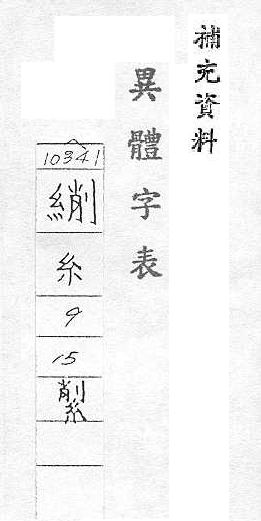 補充資料
異體字表
10341
䌃
糸
9
15